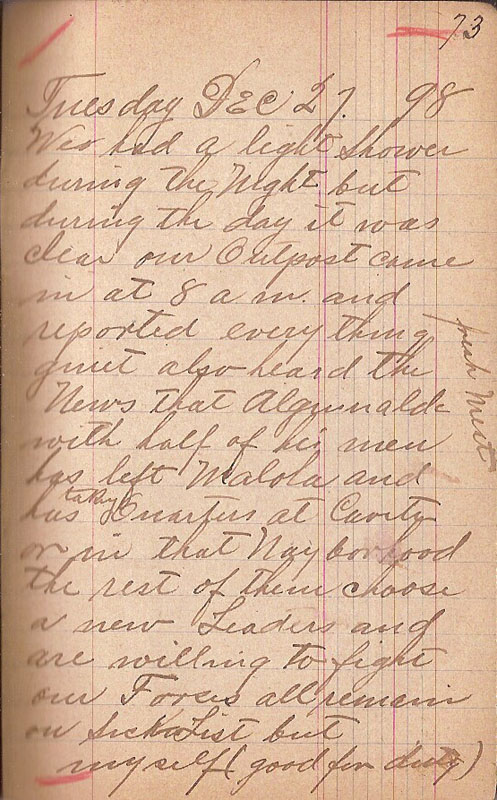 73
Tuesday DEC 27. 98
Wee had a light Shower
during the Night but
during the day it was
clear our Outpost came
in at 8 a m. and
reported every thing
quiet also heard the
News that Alguinalde
with half of his men
has left Malola and
has taking Quarters at Cavity
or in that Nayborhood
the rest of them choose
a new Leaders and
are willing to fight
our Forces all remain
on Sick List but
myself (good for duty)
fresh Meet